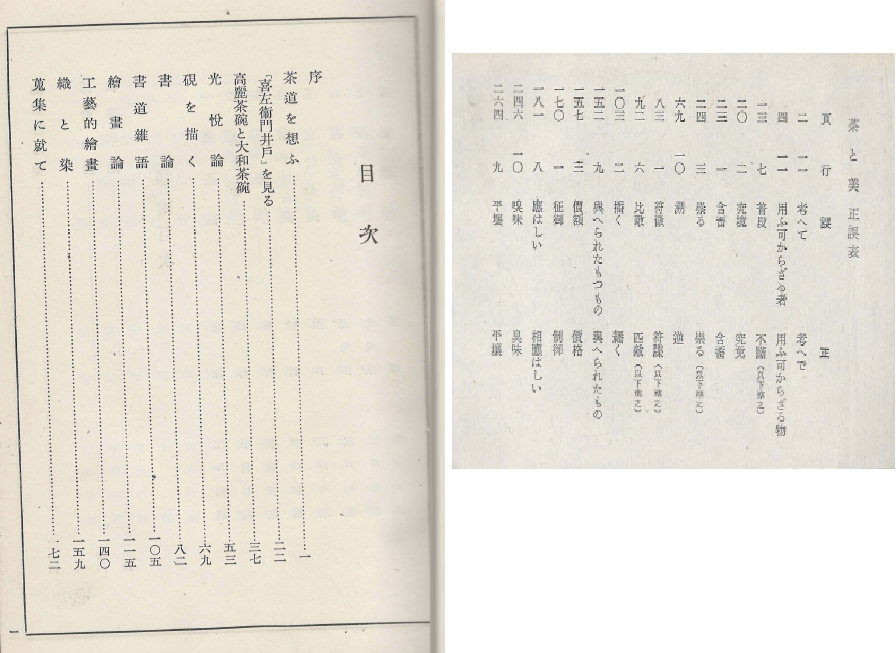 目次
序
茶道を想ふ……一
「喜左衞門井戸」を見る……二二
高麗茶碗と大和茶碗……三七
光悅論……五三
硯を描く……六九
書論……八二
書道雜語……一〇五
繪畫論……一一五
工藝的繪畫……一四〇
織と染……一五九
蒐集に就て……一七二
一
茶と美 正誤表
頁 行 誤 正
二 一一 考へて 考へで
四 一一 用ふ可からざる者 用ふ可からざる物
一三 七 普段 不斷(以下準之)
二〇 二 究境 究竟
二三 一 含蓄
二四 三 崇る 祟る(以下準之)
六九 一〇 溯 遡
八三 一 符徴 符牒(以下準之)
九二 六 比敵 匹敵(以下準之)
一〇三 二
一五二 九 與へられたもつもの 與へられたもの
一五七 三 價額 價格
一七〇 一 征御 制御
一八一 八 應はしい 相應はしい
二四六 一〇 嗅味 臭味
二六四 九 平壤